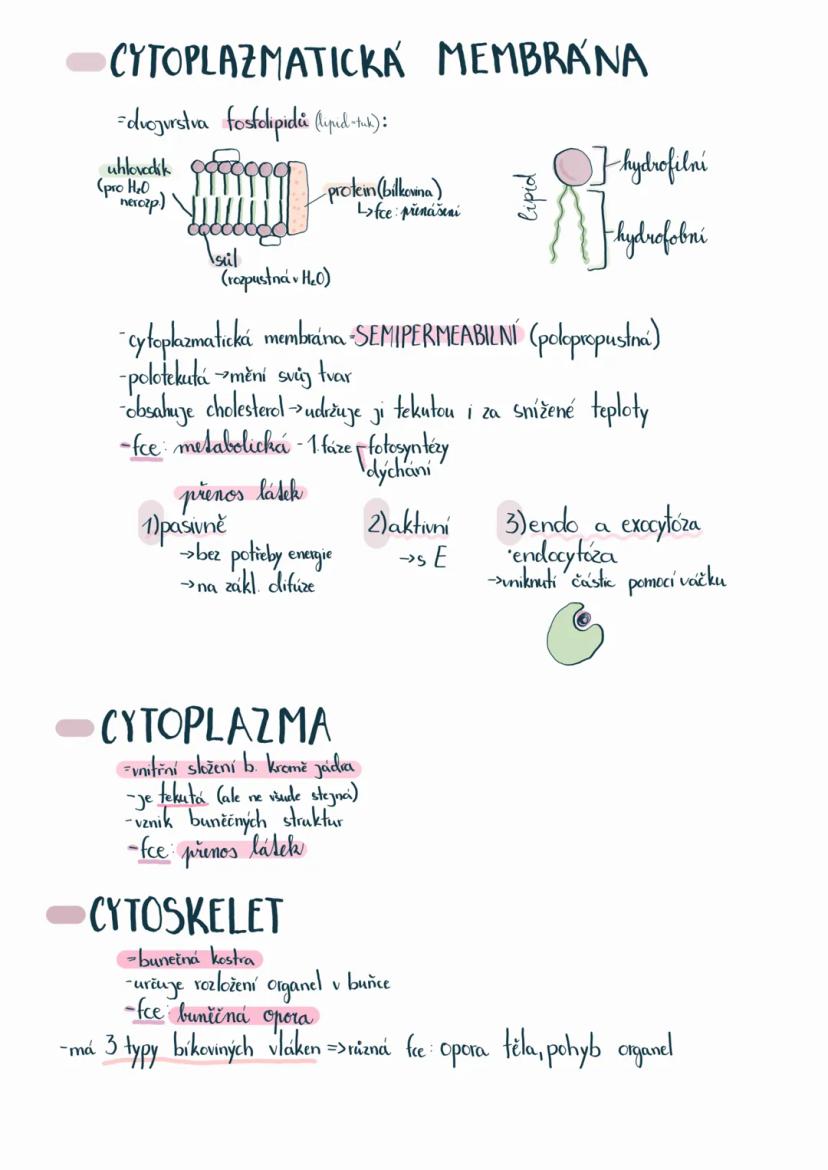 CYTOPLAZMATICKÁ MEMBRÁNA
=dvojvrstva fosfolipidů (lipid=tuk):
uhlovodík
(pro H₂O
nerozp.)
protein (bílkovina)
↳fce: přenášení
sůl
(rozpustná v H₂O)
lipid
hydrofilní
hydrofobní
-cytoplazmatická membrána=SEMIPERMEABILNÍ (polopropustná)
-polotekutá →mění svůj tvar
-obsahuje cholesterol→udržuje ji tekutou i za snížené teploty
-fce: metabolická - 1. fáze fotosyntézy
dýchání
přenos látek
1)pasivně
→bez potřeby energie
→na zákl. difúze
2)aktivní
→s E
3)endo a exocytóza
•endocytóza
→vniknutí částic pomocí váčku
CYTOPLAZMA
=vnitřní složení b. kromě jádra
-je tekutá (ale ne všude stejná)
-vznik buněčných struktur
-fce: přenos látek
CYTOSKELET
=bunečná kostra
-určuje rozložení organel v buňce
-fce: buněčná opora
-má 3 typy bíkoviných vláken =>různá fce: opora těla, pohyb organel